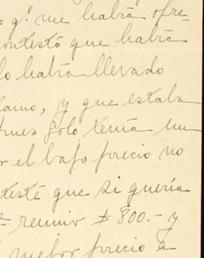 o q.' me habrá ofre-
contestó que habra
lo habra llevado
lamo, y que estaba
pues solo tenía un
or el bajo precio no
ntesté que si quería
reunir $800.- y
mejor precio a